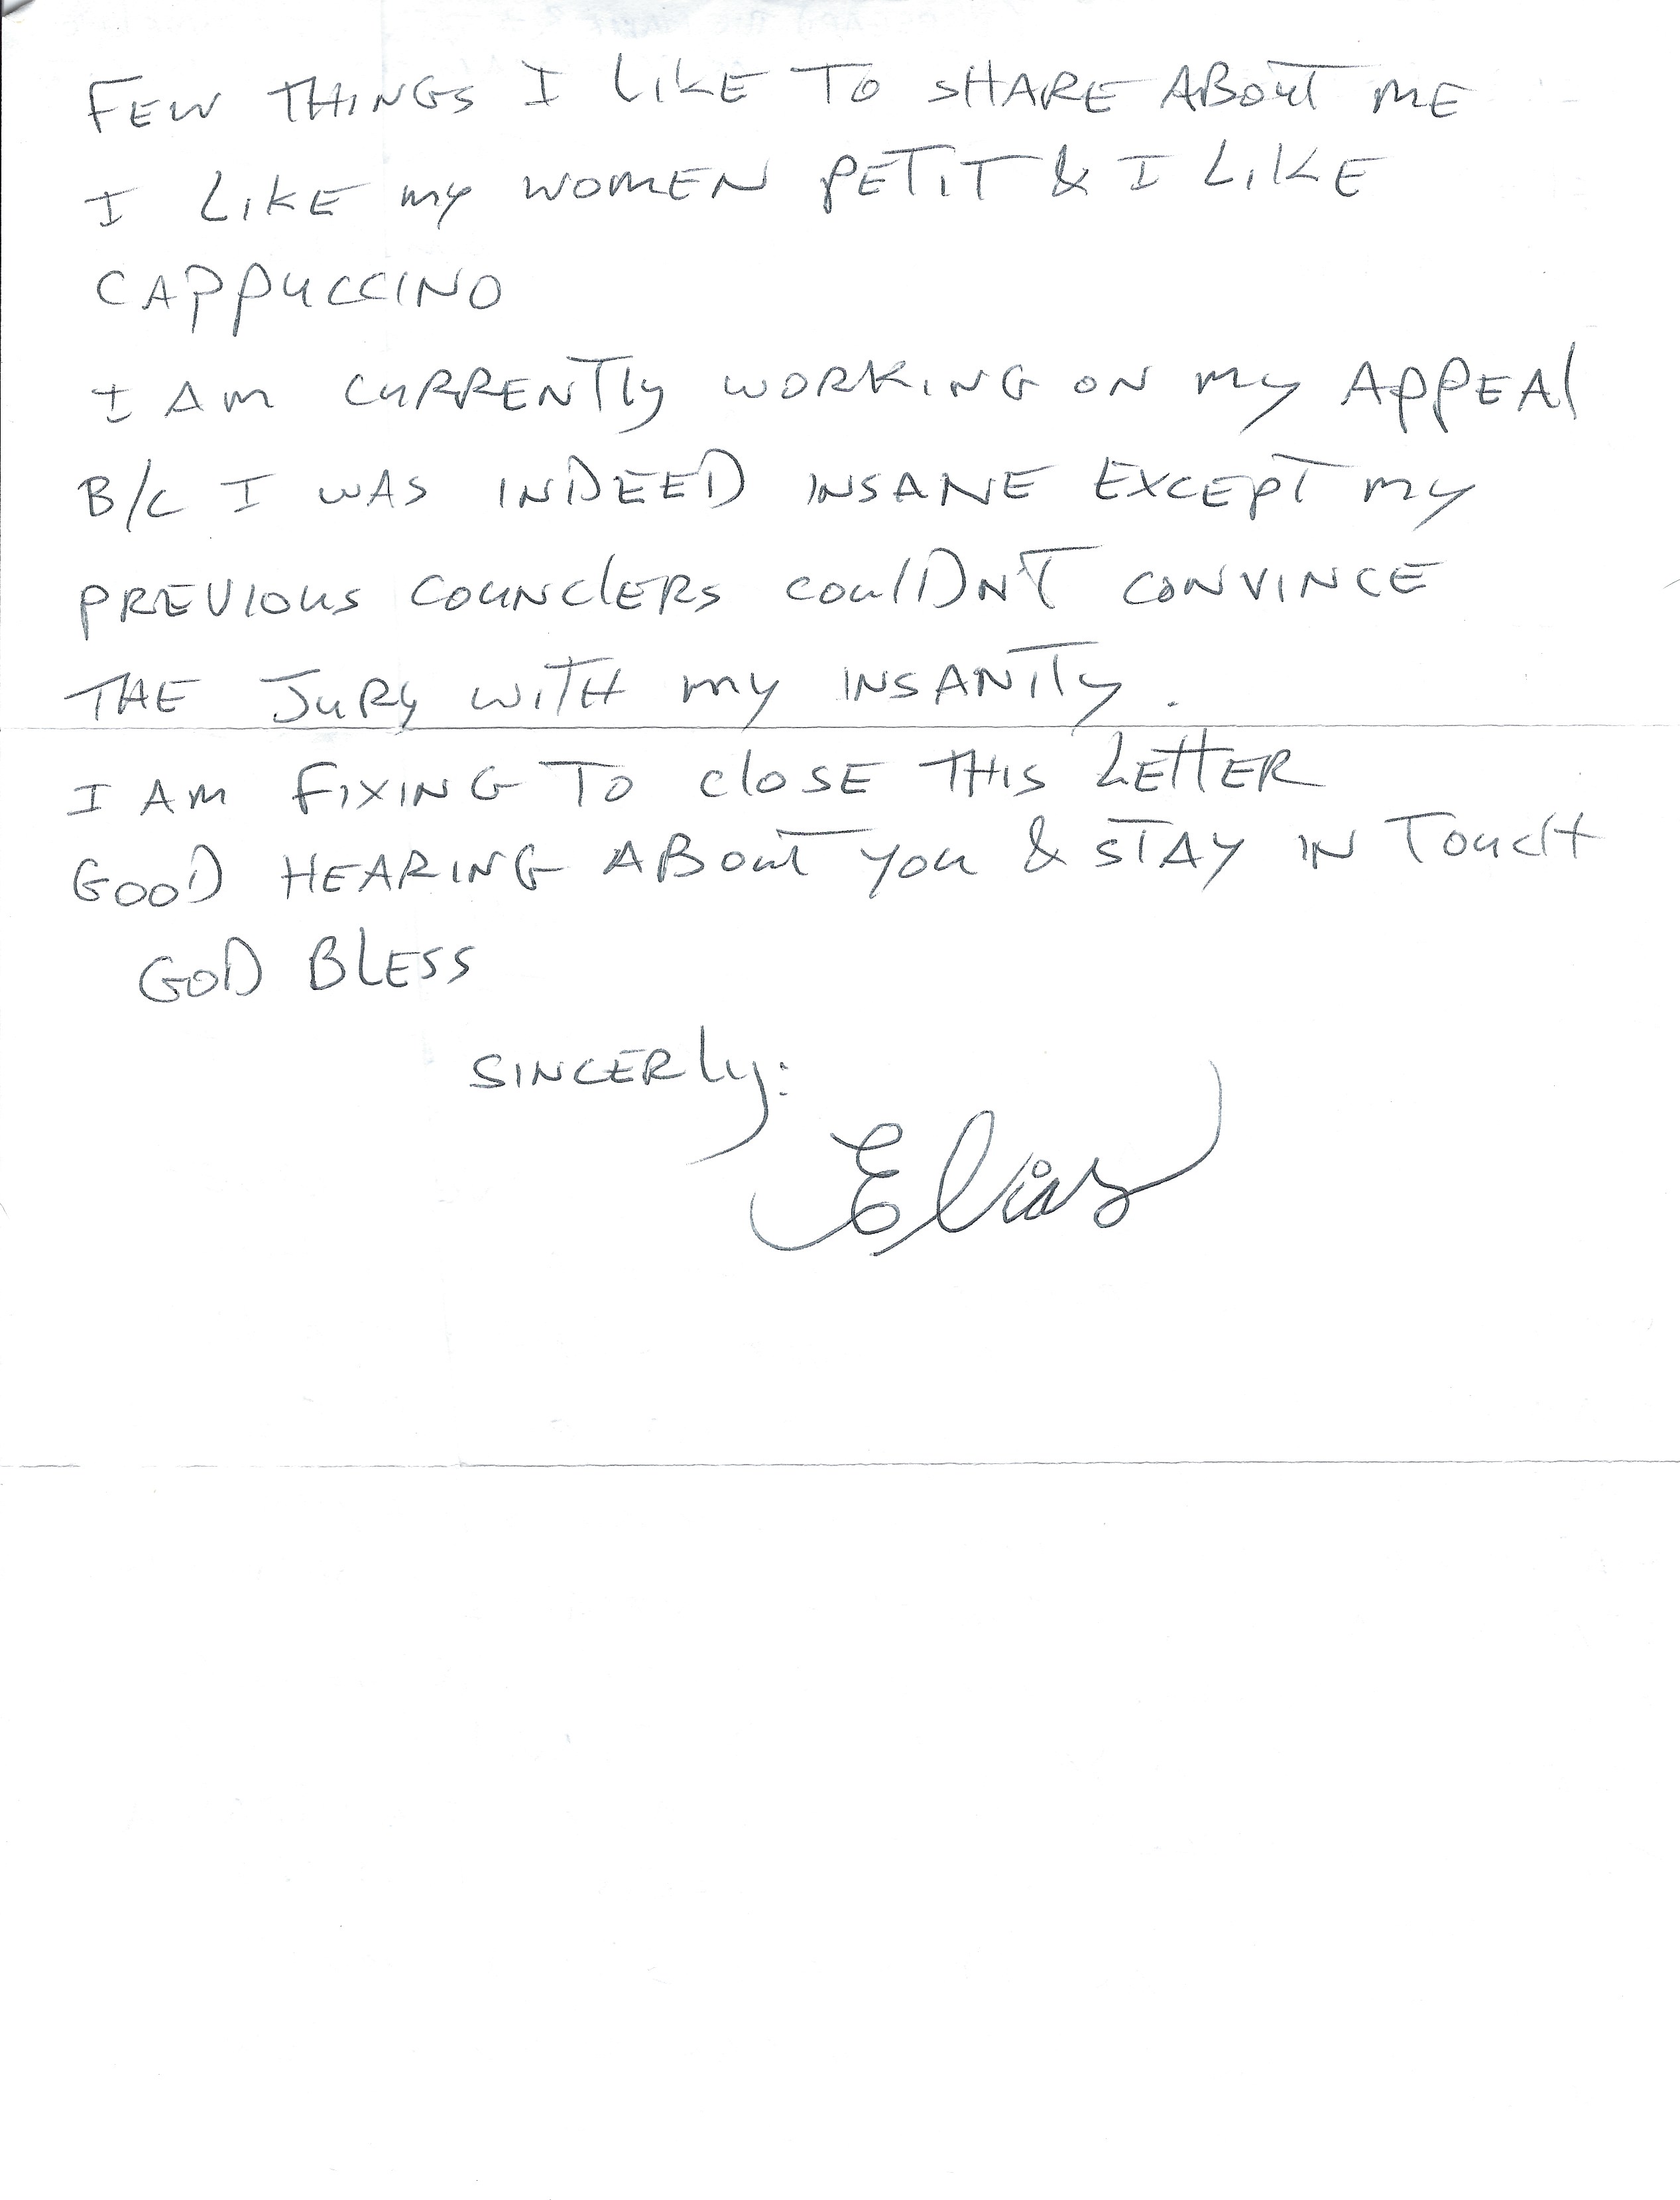 FEW THINGS I LIKE TO SHARE ABOUT ME
I LIKE MY WOMEN PETIT & I LIKE
CAPPUCCINO
I AM CURRENTLY WORKING ON MY APPEAL
B/C I WAS INDEED INSANE EXCEPT MY
PREVIOUS COUNCLERS COULDN'T CONVINCE
THE JURY WITH MY INSANITY.
I AM FIXING TO CLOSE THIS LETTER
GOOD HEARING ABOUT YOU & STAY IN TOUCH
GOD BLESS
SINCERLY:
Elias